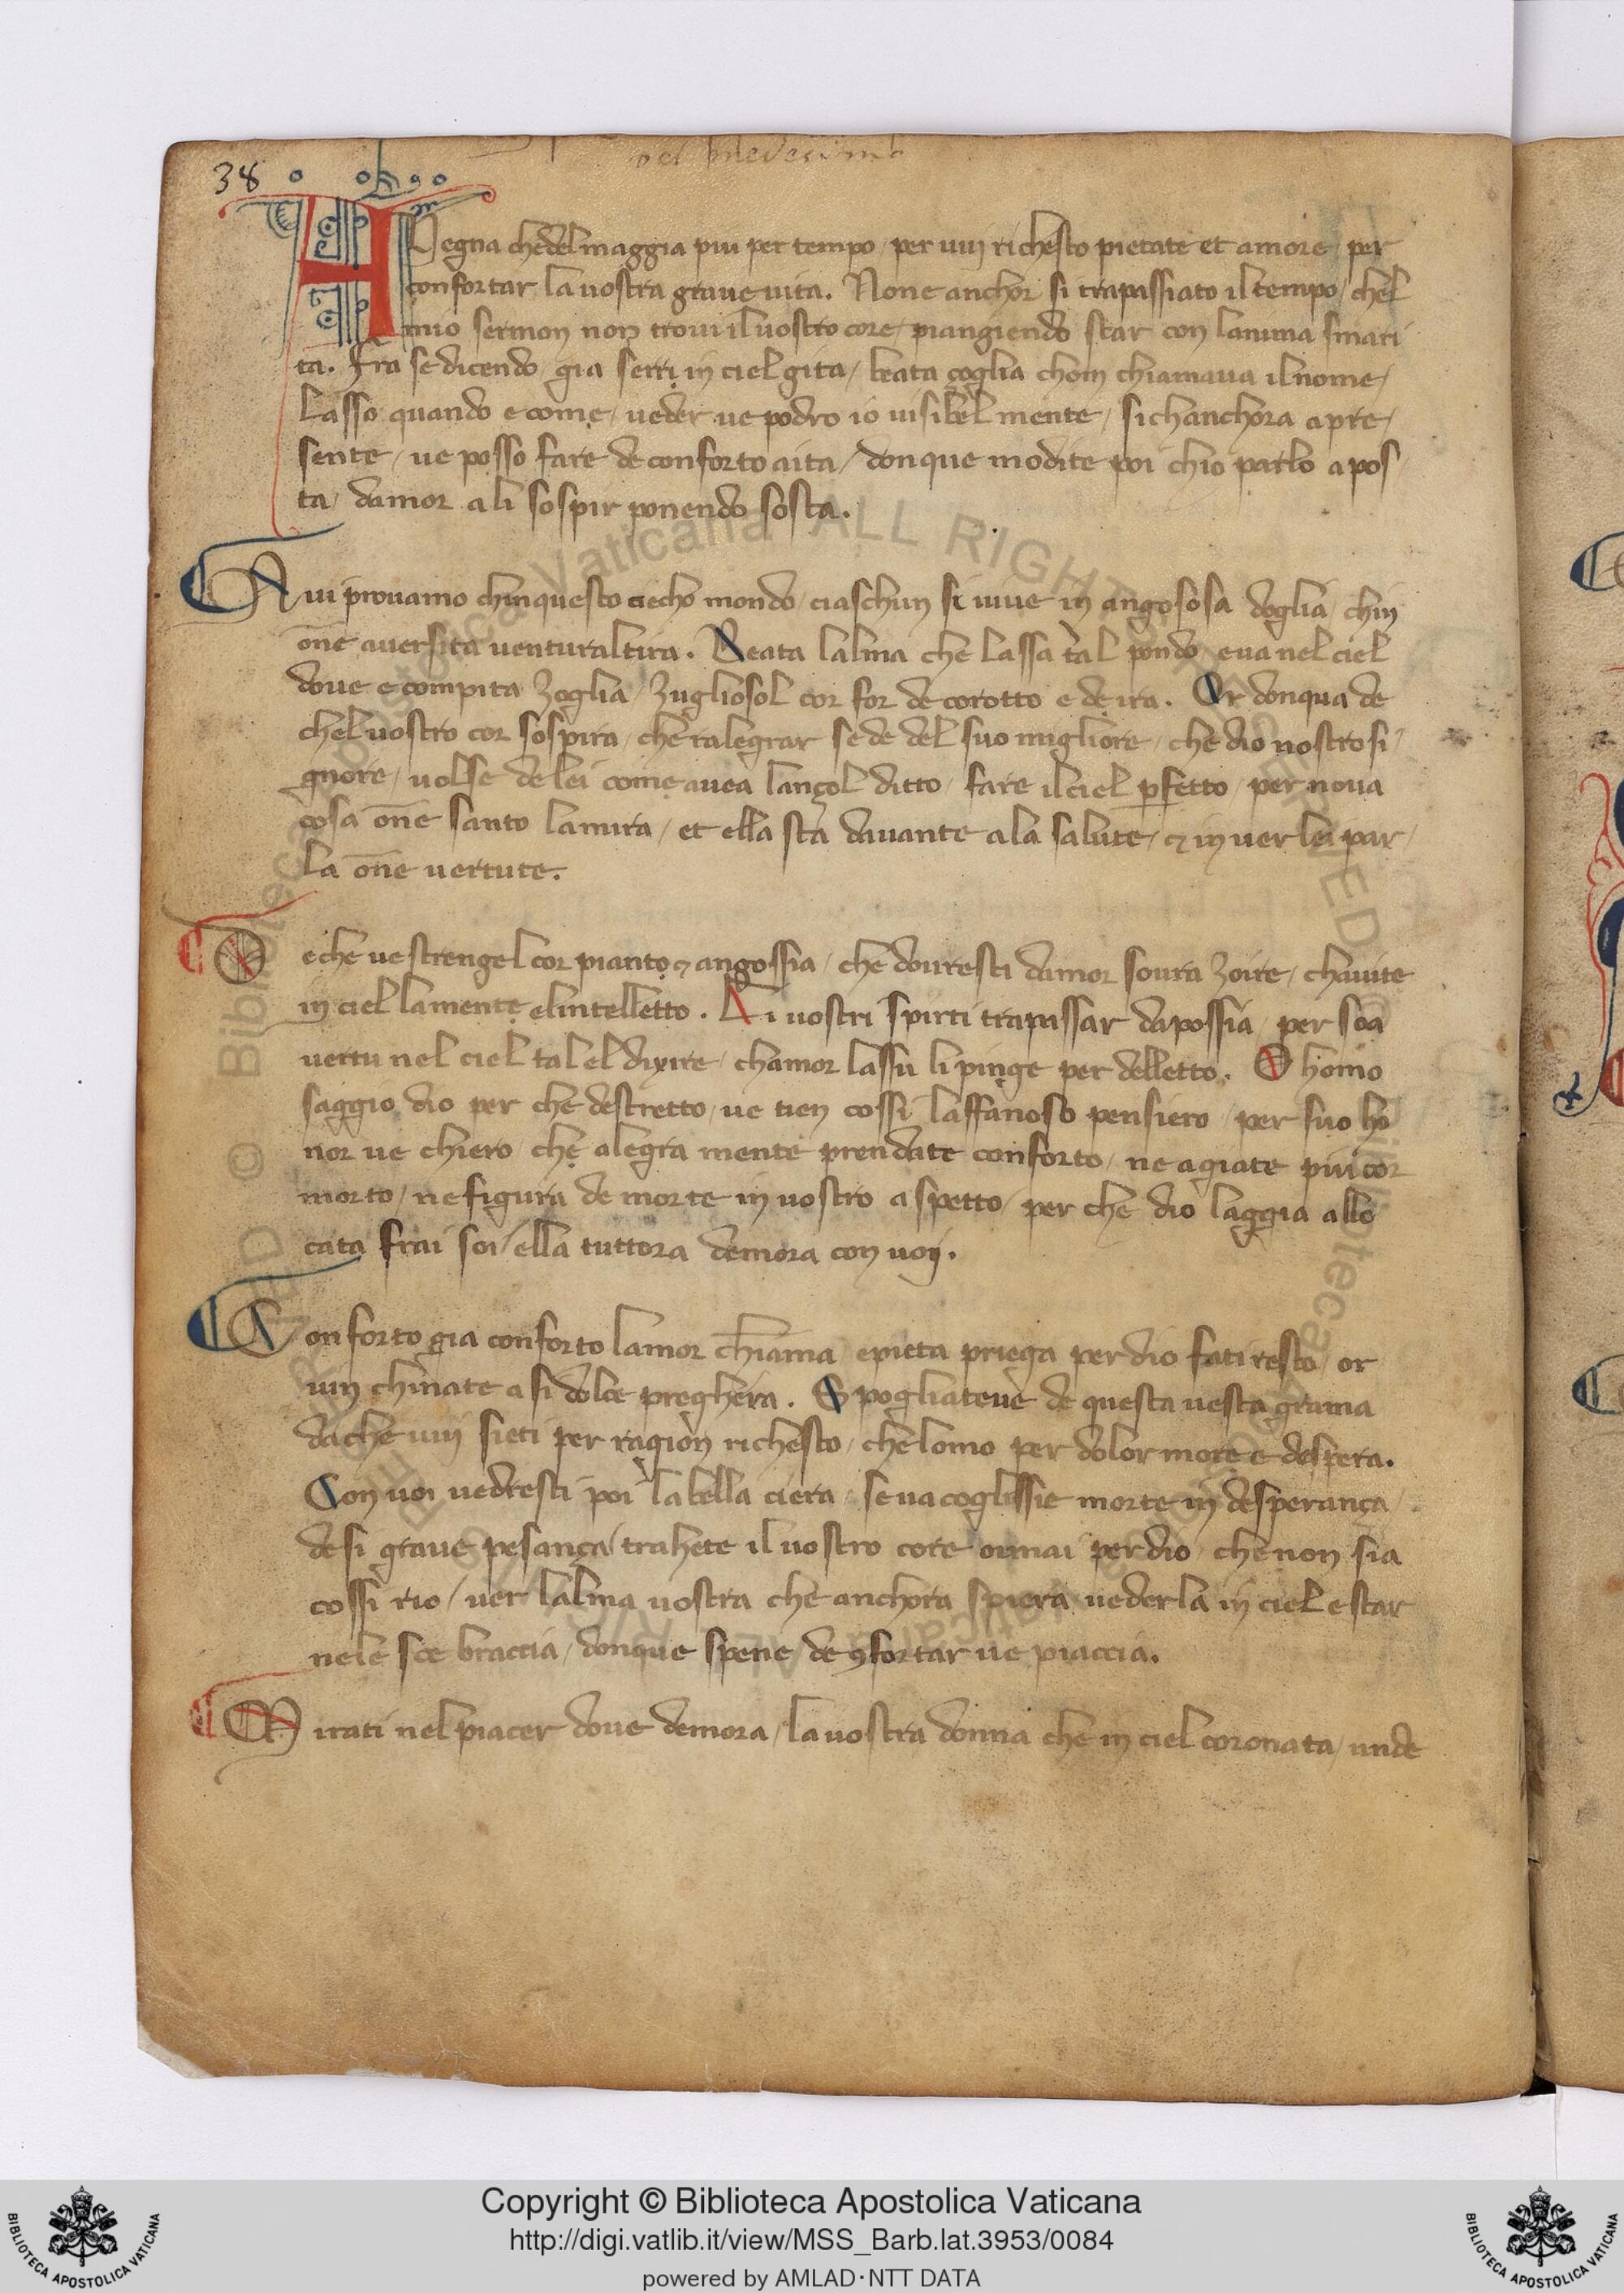 del medesimo
38
A Vegna chedel maggia piu per tempo / per vuj richesto pietate et amore / per
confortar la uostra graue uita. None anchor si trapassiato il tempo / chel
mio sermon non troui il uostro core / piangiendo star con lanima smari
ta. Fra se dicendo / gia serri in ciel gita / beata çoglia chom chiamaua il nome /
Lasso quando e come / ueder ue podro io uisibel mente / sichanchora a pre /
sente / ue posso fare de conforto aita / donque modite poi chio parlo a pos
ta / damor a li sospir ponendo sosta.
A uui prouamo chinquesto ciecho mondo / ciaschun si uiue in angososa doglia / chin
onē auersita uentural tira. Beata lalma che lassa tal pondo / e ua nel ciel
doue e compita zoglia / zugliosol cor for de corotto e de ira. Or donqua de
chel uostro cor sospira / che ralegrar se de del suo migliore / che dio nostro si /
gnore / uolse de lei come auea langol ditto / fare il ciel p̱fetto / per noua
cosa onē santo lamira / et ella sta dauante a la salute / & in uer lei par /
la onē uertute.
D e che ue strengel cor pianto & angossia / che douresti damor soura zoire / chauite
in ciel la mente e lintelletto. Li uostri spirti trapassar da possia / per soa
uertu nel ciel tal el dixire / chamor lassu li pinge per delletto. O homo
saggio dio per che destretto / ue tien cossi laffanoso pensiero / per suo ho
nor ue chiero / che alegra mente prendate conforto / ne agiate piui cor
morto / ne figura de morte in uostro aspetto / per che dio laggia allo
cata frai soi / ella tuttora demora con uoj.
C onforto gia conforto lamor chiama / e pieta priega per dio fati resto / or
uuj chinate a si dolce preghera. Spogliateue de questa uesta grama
da che uuj sieti per ragion richesto / che lomo per dolor more e despera.
Con uoi uedresti poi la bella ciera / se ua coglissie morte in desperança /
de si graue pesança / trahete il uostro core oimai per dio / che non sia
cossi rio / uer lalma uostra che anchora spiera uederla in ciel e star
nele sce braccia / donque spene de ꝯfortar ue piaccia.
M irati nel piacer doue demora / la uostra donna che in ciel coronata / unde
© Biblioteca Apostolica Vaticana ALL RIGHTS RESERVED
Copyright © Biblioteca Apostolica Vaticana
http://digi.vatlib.it/view/MSS_Barb.lat.3953/0084
powered by AMLAD·NTT DATA
BIBLIOTECA APOSTOLICA VATICANA
BIBLIOTECA APOSTOLICA VATICANA